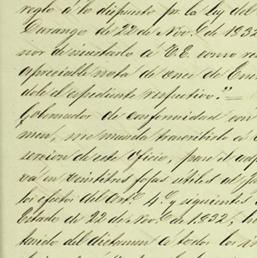 reglo á lo dispuesto pr. la ley del
Durango de 22 de Nov.e de 1832
nor de insertarlo á V.E. como re
apreciable nota de once de En
dole el espediente respectivo."=
Gobernador de conformidad con
men, me manda transcribirlo á
sercion de este oficio, para el esp
vá en veintitres fojas utiles al Ju
los efectos del Art.o 4.o y siguientes
Estado de 22 de Nov.e de 1832, 
tario del dictamen de todos los